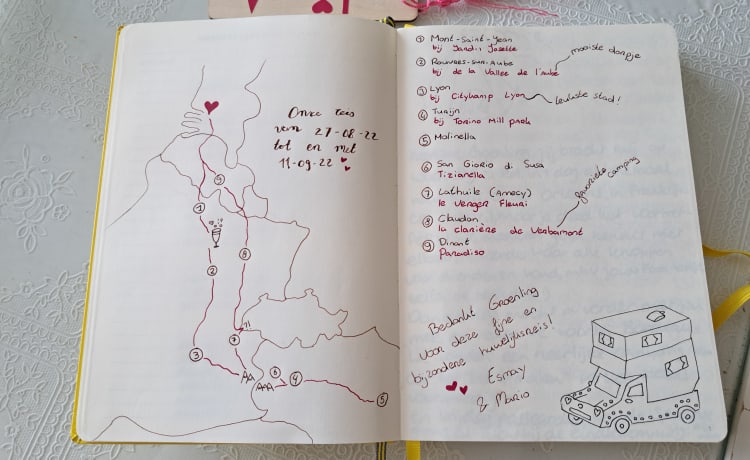 Onze reis
van 27-08-22
tot en met
11-09-22
9
1
8
2
7
?!
3
6
4
5
① Mont-Saint-Jean
bij Jardin Josette
② Rouvres-sur-aube
bij de la Vallee de l'aube
mooiste dorpje
③ Lyon
bij Citykamp Lyon
leukste stad!
④ Turijn
bij Torino Mill park
⑤ Molinella
⑥ San Giorio di Susa
Tizianella
⑦ Lathuile (Annecy)
le Verger Fleuri
⑧ Claudon
la clarière de Verbamont
favoriete camping
⑨ Dinant
Paradiso
Bedankt Groenling
voor deze fijne en
bijzondere huwelijksreis!
Esmay
& Mario